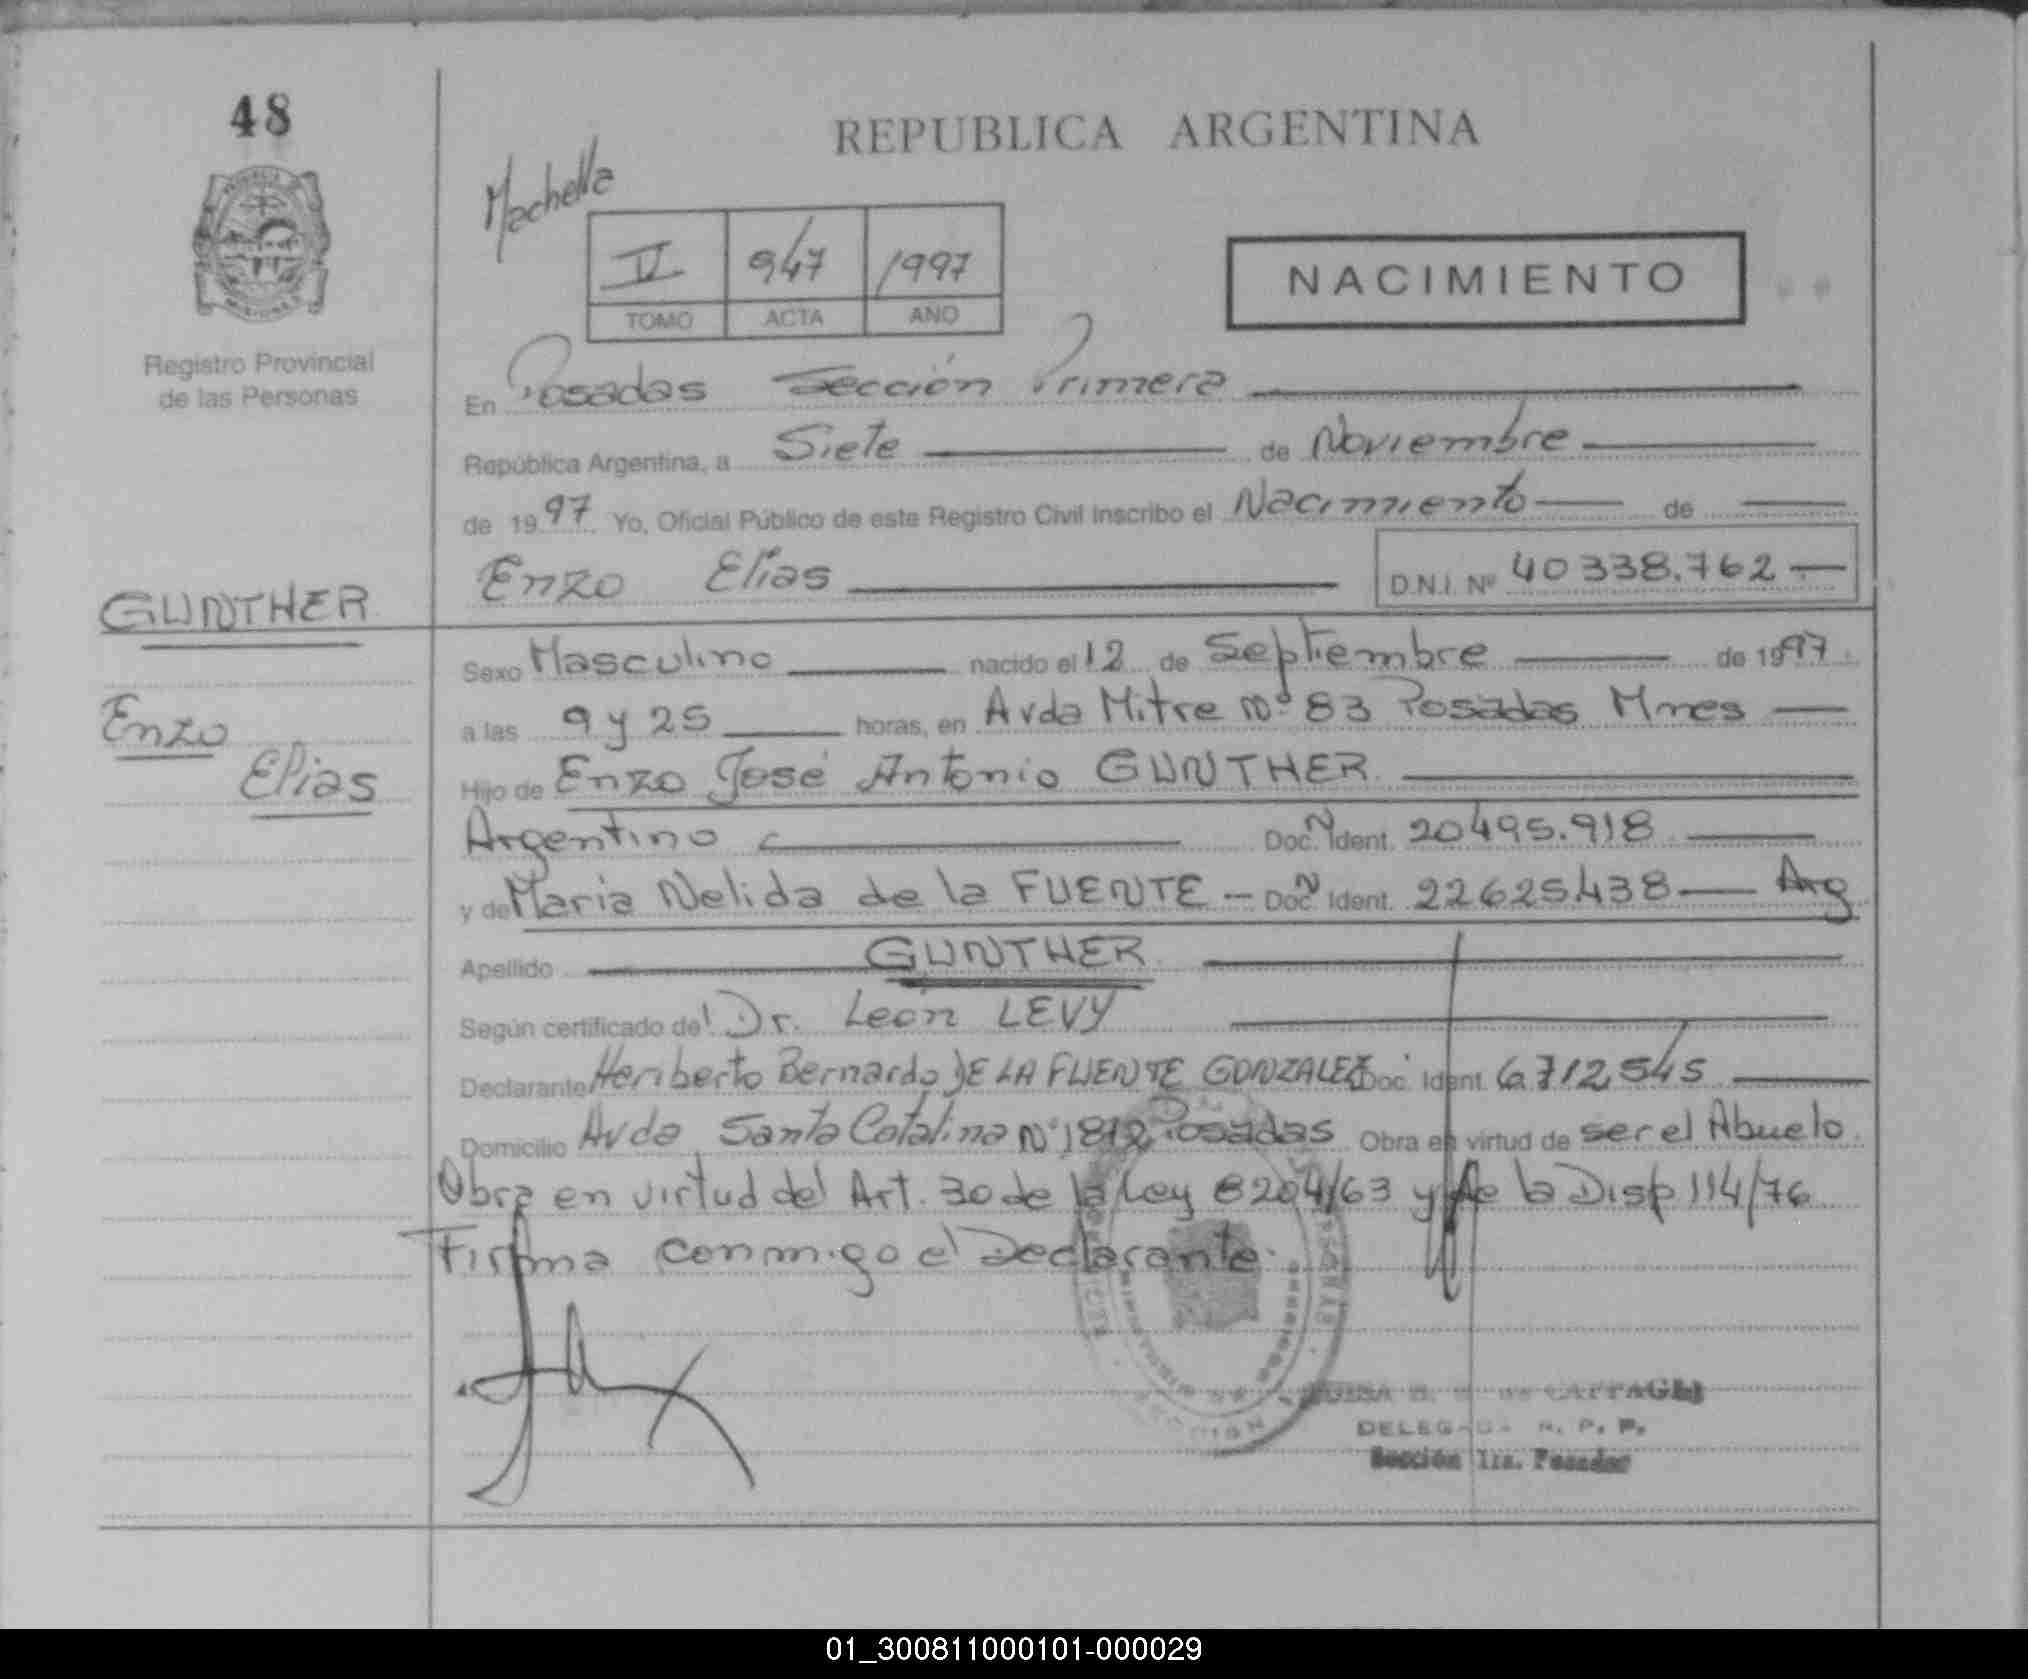 48
REPUBLICA ARGENTINA
Machella
II 947 1997
TOMO ACTA AÑO
NACIMIENTO
Registro Provincial
de las Personas
En Posadas Sección Primera
República Argentina, a Siete de Noviembre
de 1997 Yo, Oficial Público de este Registro Civil inscribo el Nacimiento de
Enzo Elias D.N.I. Nº 40338.762
GUNTHER
Enzo
Elias
Sexo Masculino nacido el 12 de Septiembre de 1997
a las 9 y 25 horas, en Avda Mitre Nº 83 Posadas Mnes
Hijo de Enzo José Antonio GUNTHER
Argentino Doc. N Ident. 20495.918
y de Maria Nelida de la FUENTE - Doc. N Ident. 22625.438 Arg
Apellido GUNTHER
Según certificado del Dr. León LEVY
Declarante Heriberto Bernardo DE LA FUENTE GONZALEZ Doc. Ident. 6712.545
Domicilio Avda Santa Catalina Nº 1812 Posadas Obra en virtud de ser el Abuelo
Obra en virtud del Art. 30 de la Ley 8204/63 y de la Disp 114/76
Firma conmigo el Declarante.
DELEGADA R. P. P.
Sección 1ra. Posadas
01_300811000101-000029